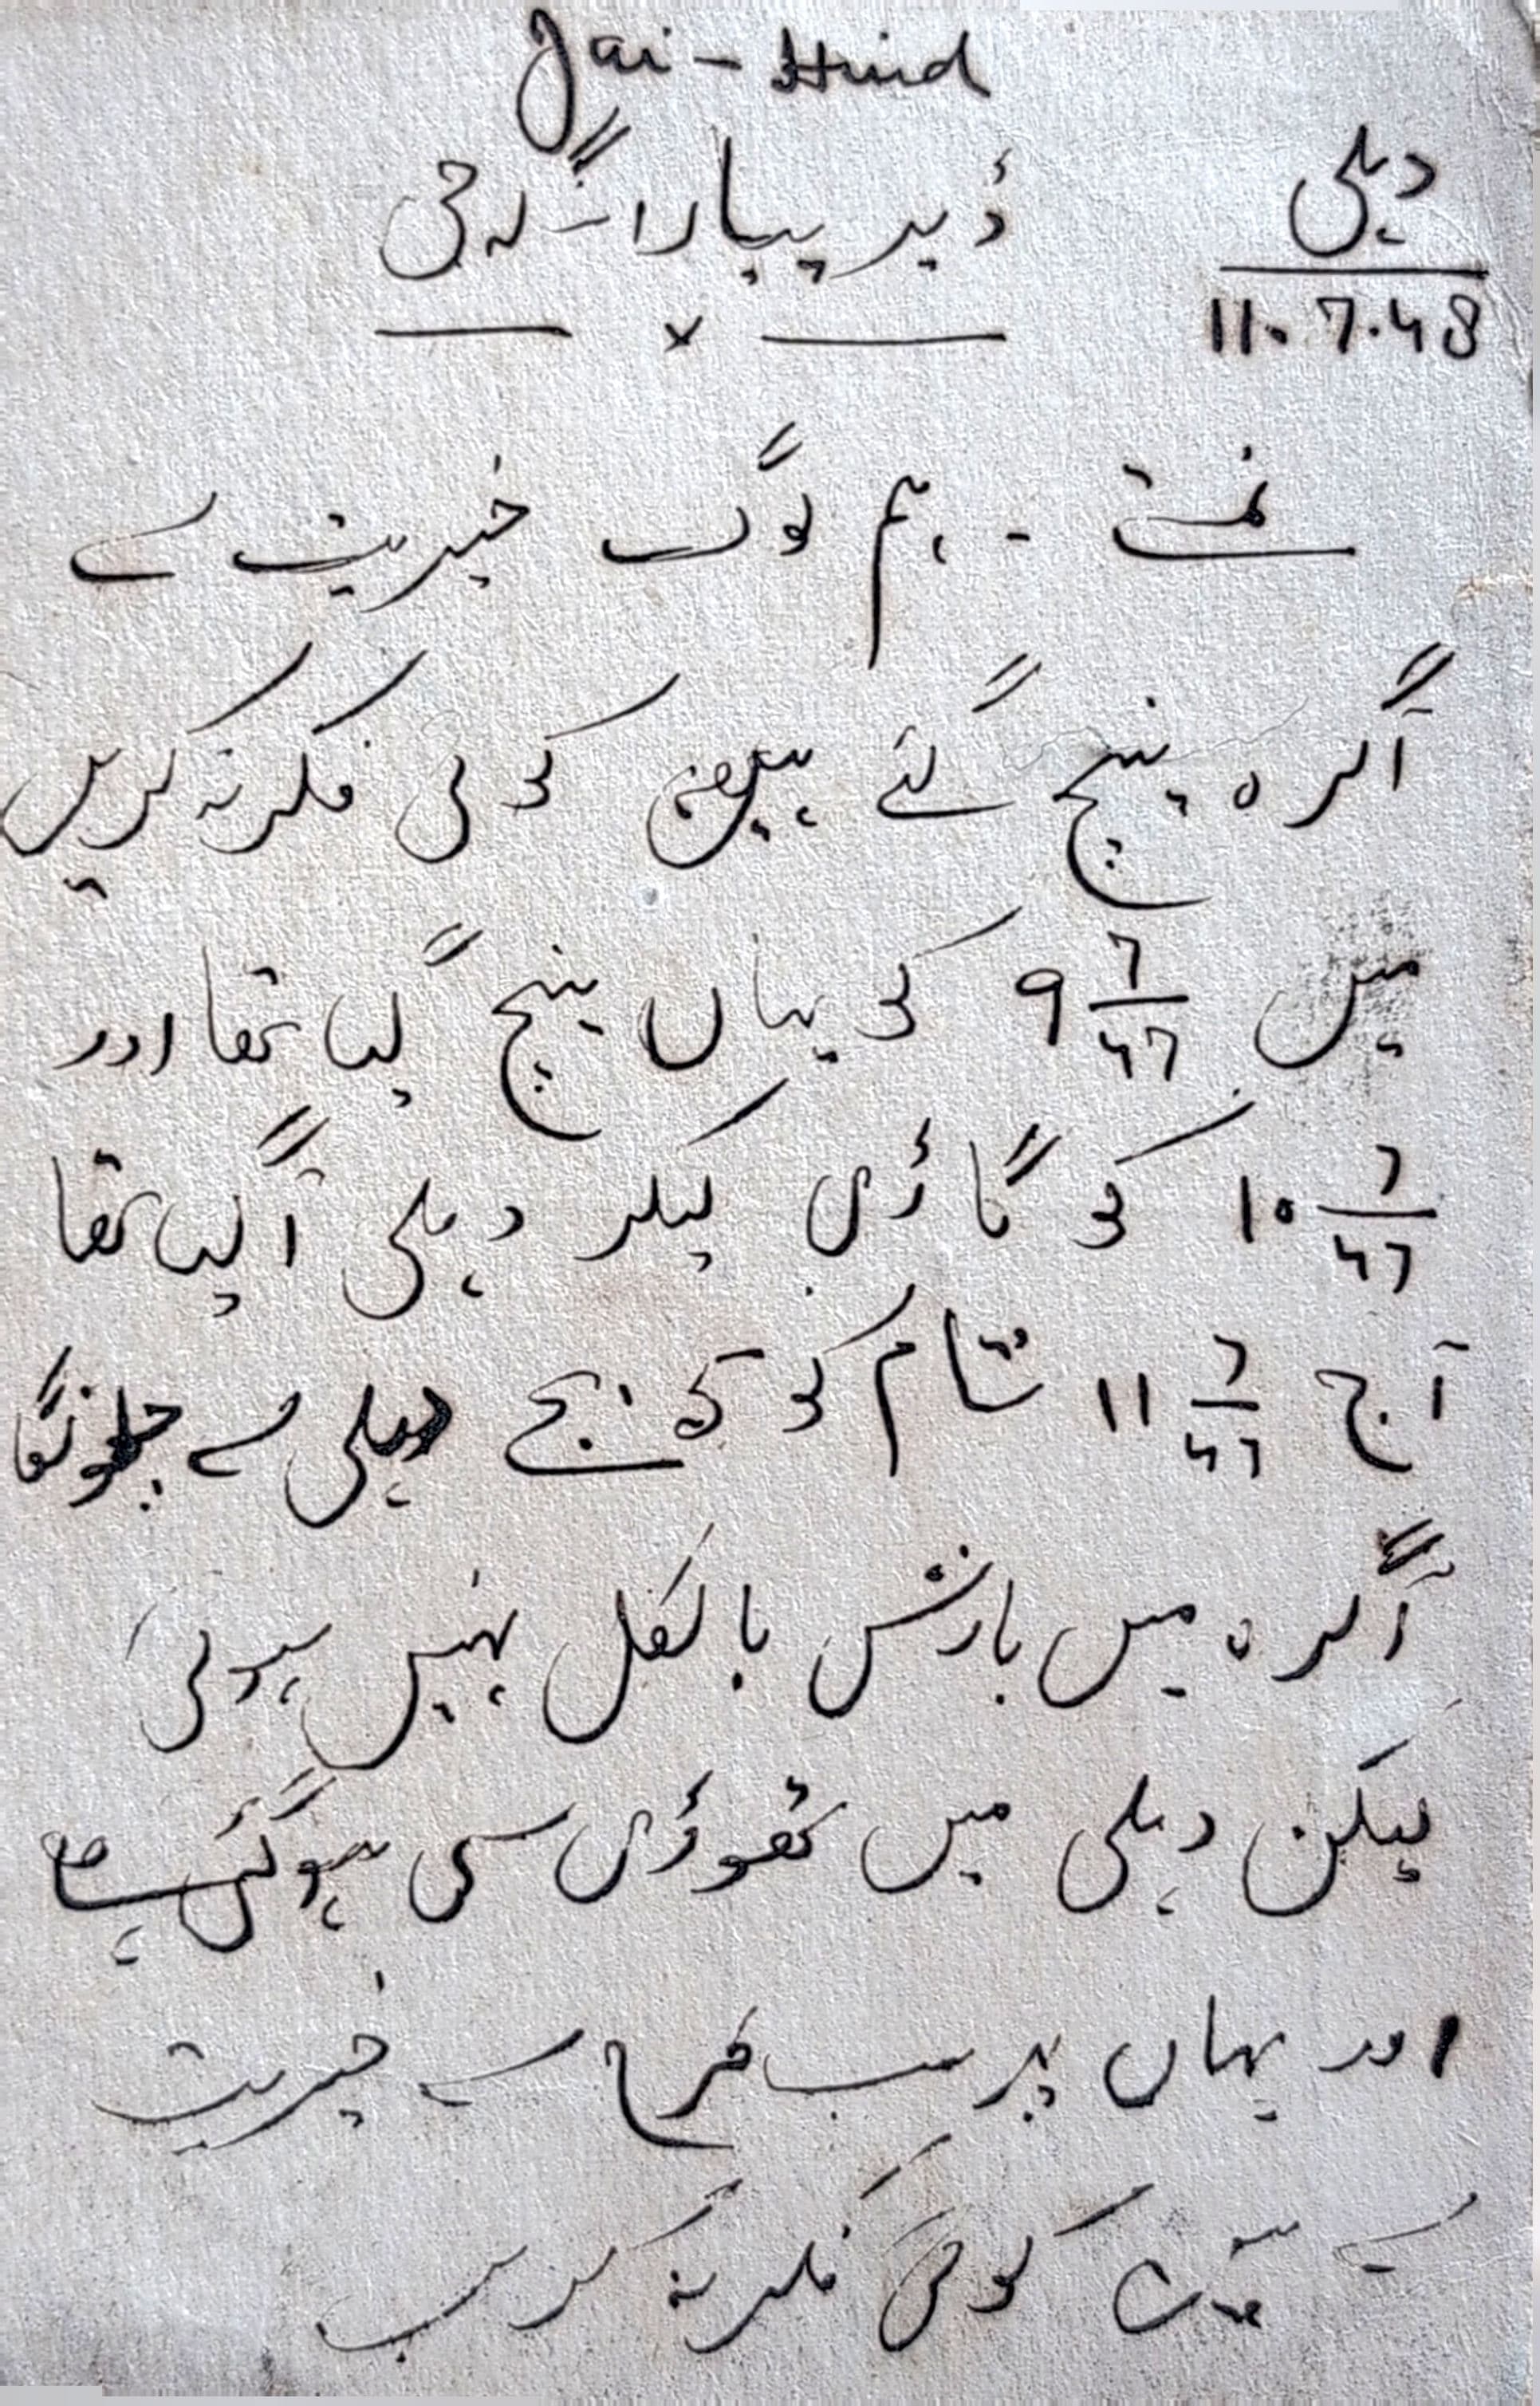 Jai - Hind
دہلی
11.7.48
ڈیر پیارا لہ جی
نمستے - ہم لوگ خیریت سے
آگرہ پہنچ گئے ہیں کوئی فکر نہ کریں
میں 9 7/47 کو یہاں پہنچ گیا تھا اور
10 7/47 کو گاڑی لیکر دہلی آ گیا تھا
آج 11 7/47 شام کو بجے دہلی سے چلونگا
آگرہ میں بارش بالکل نہیں ہوئی
لیکن دہلی میں تھوڑی سی ہو گئی ہے
اور یہاں پر سب طرح سے خیریت
ہے کوئی فکر نہ کریں